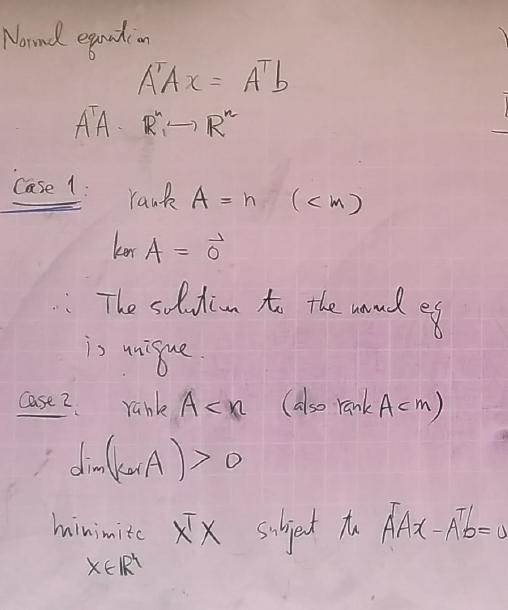 Normal equation
AᵀAx = Aᵀb
AᵀA : ℝⁿ → ℝⁿ
Case 1 :
rank A = n (< m)
ker A = 0⃗
∴ The solution to the normal eq
is unique.
Case 2.
rank A < n (also rank A < m)
dim(ker A) > 0
minimize xᵀx subject to AᵀAx - Aᵀb = 0
x ∈ ℝⁿ